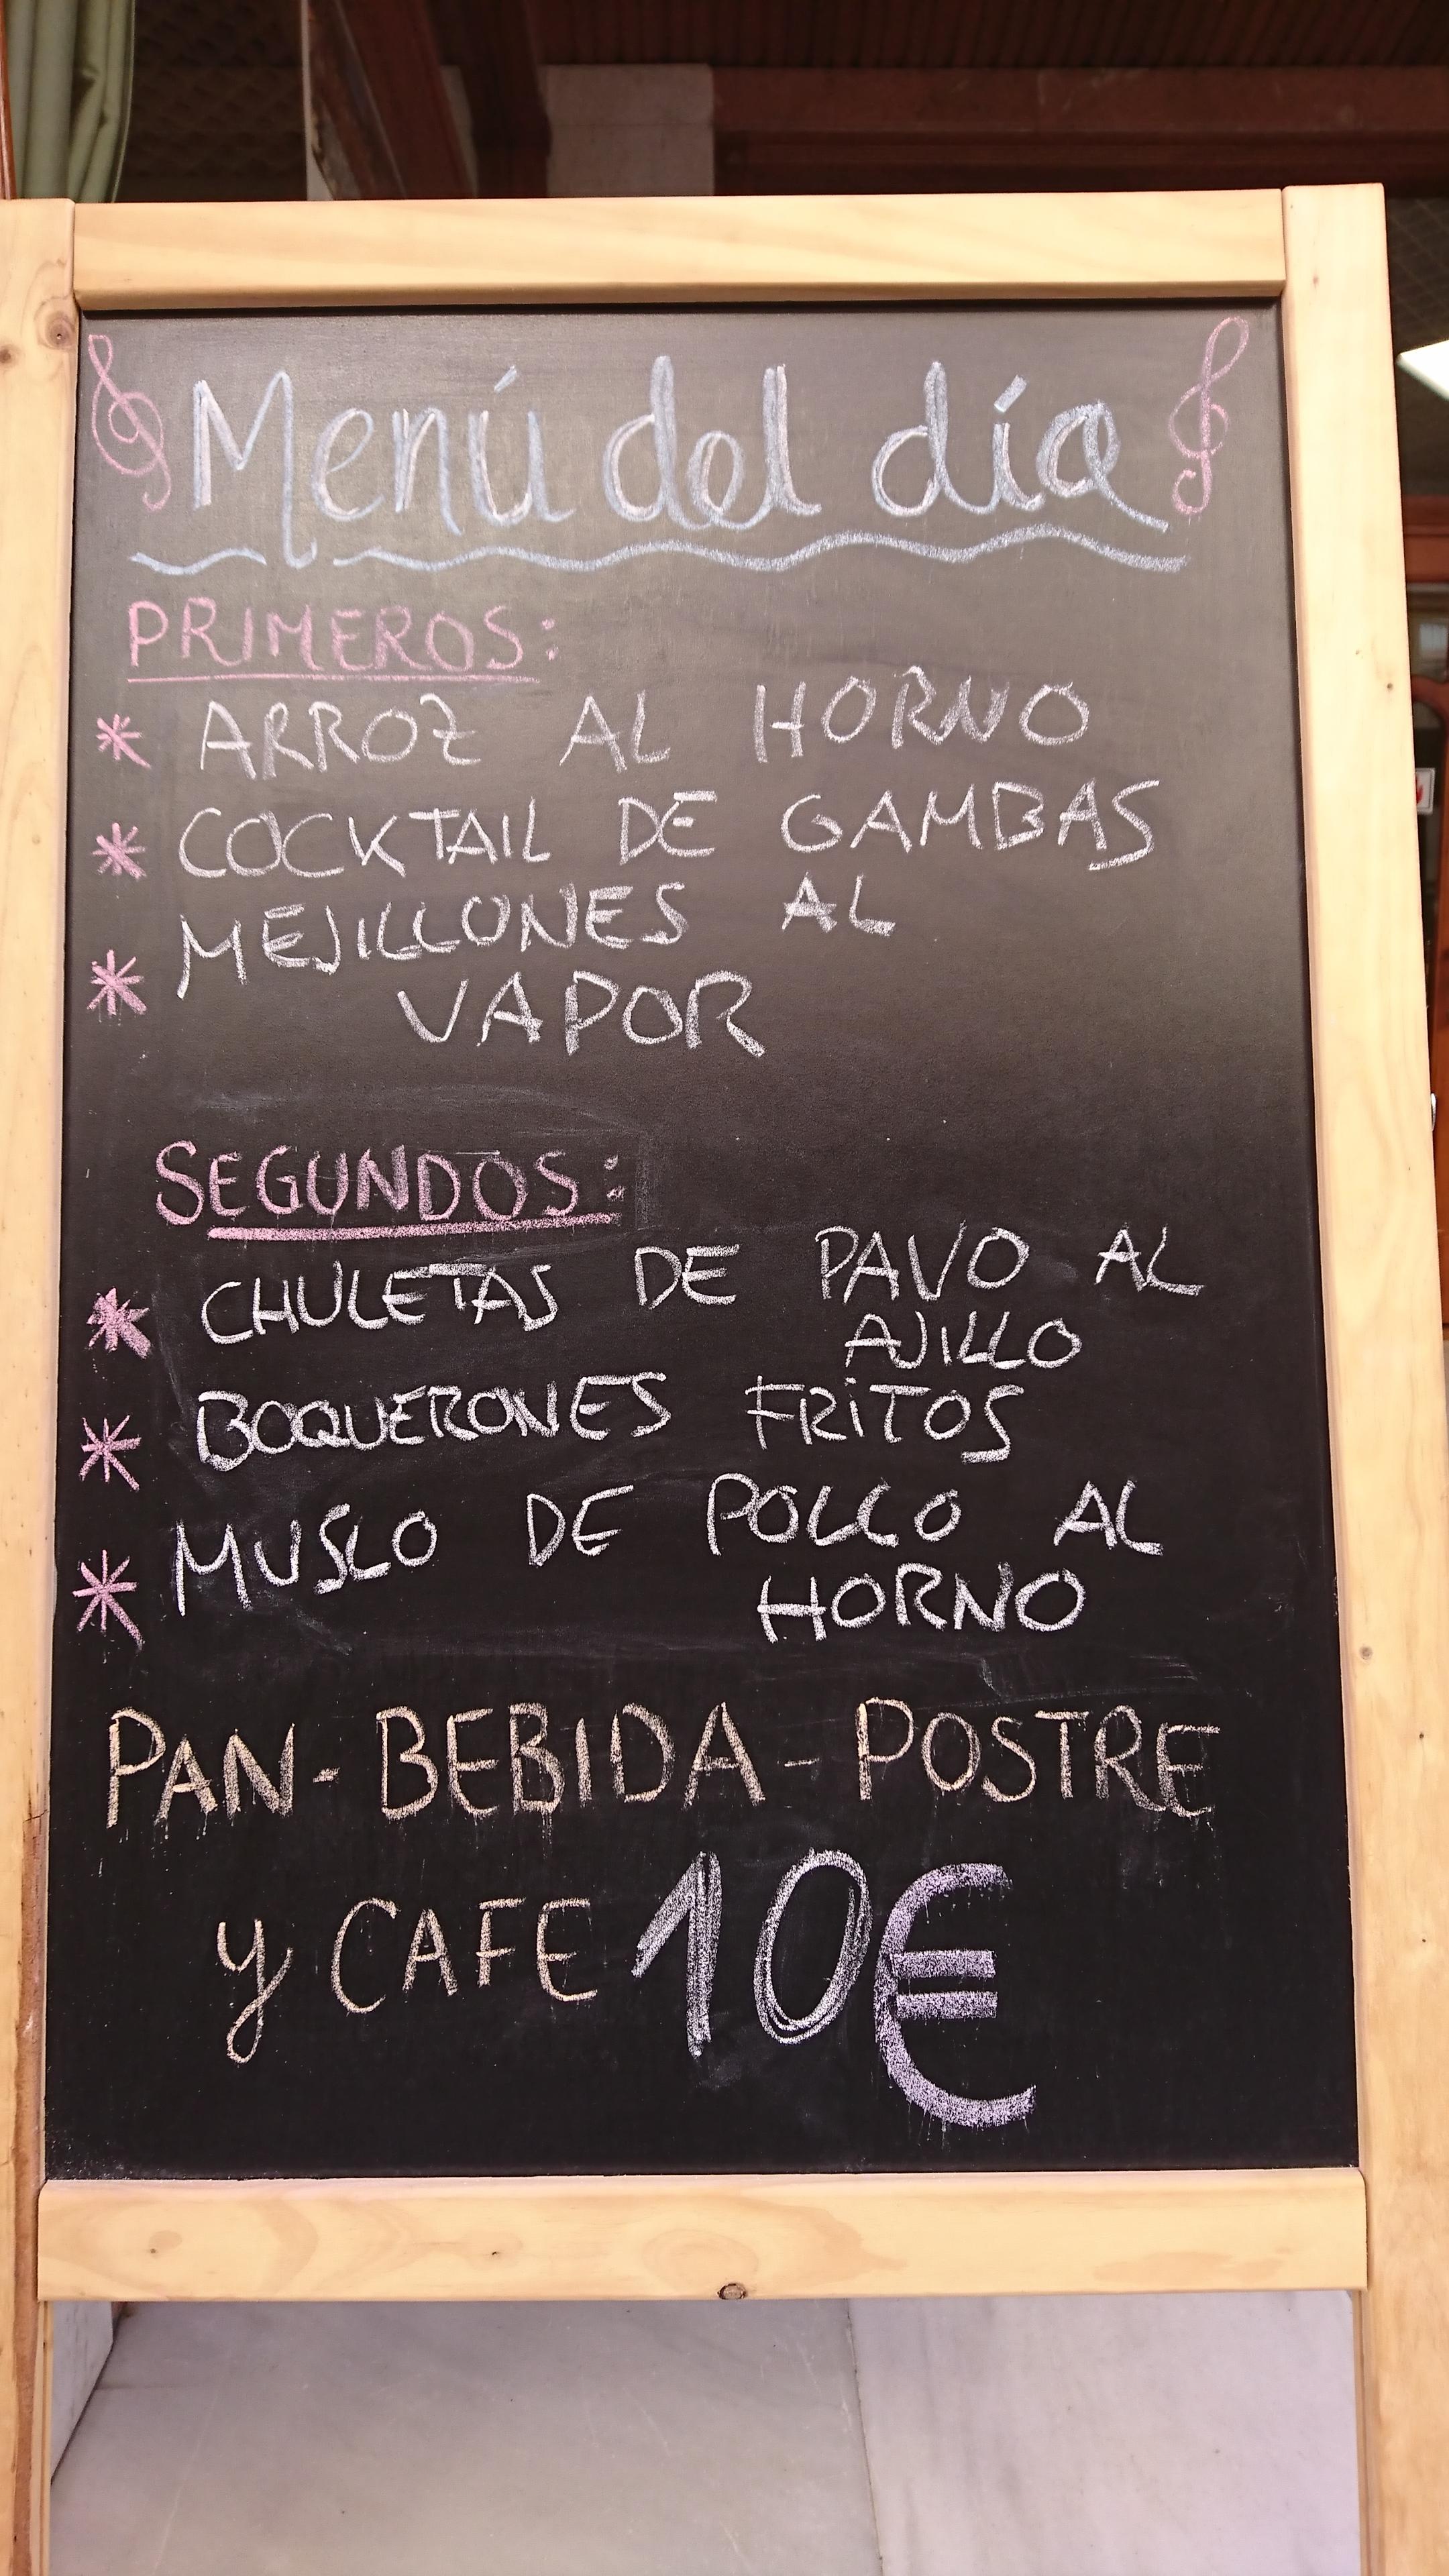 Menú del día
PRIMEROS:
* ARROZ AL HORNO
* COCKTAIL DE GAMBAS
* MEJILLONES AL
VAPOR
SEGUNDOS:
* CHULETAS DE PAVO AL
AJILLO
* BOQUERONES FRITOS
* MUSLO DE POLLO AL
HORNO
PAN - BEBIDA - POSTRE
y CAFE 10€